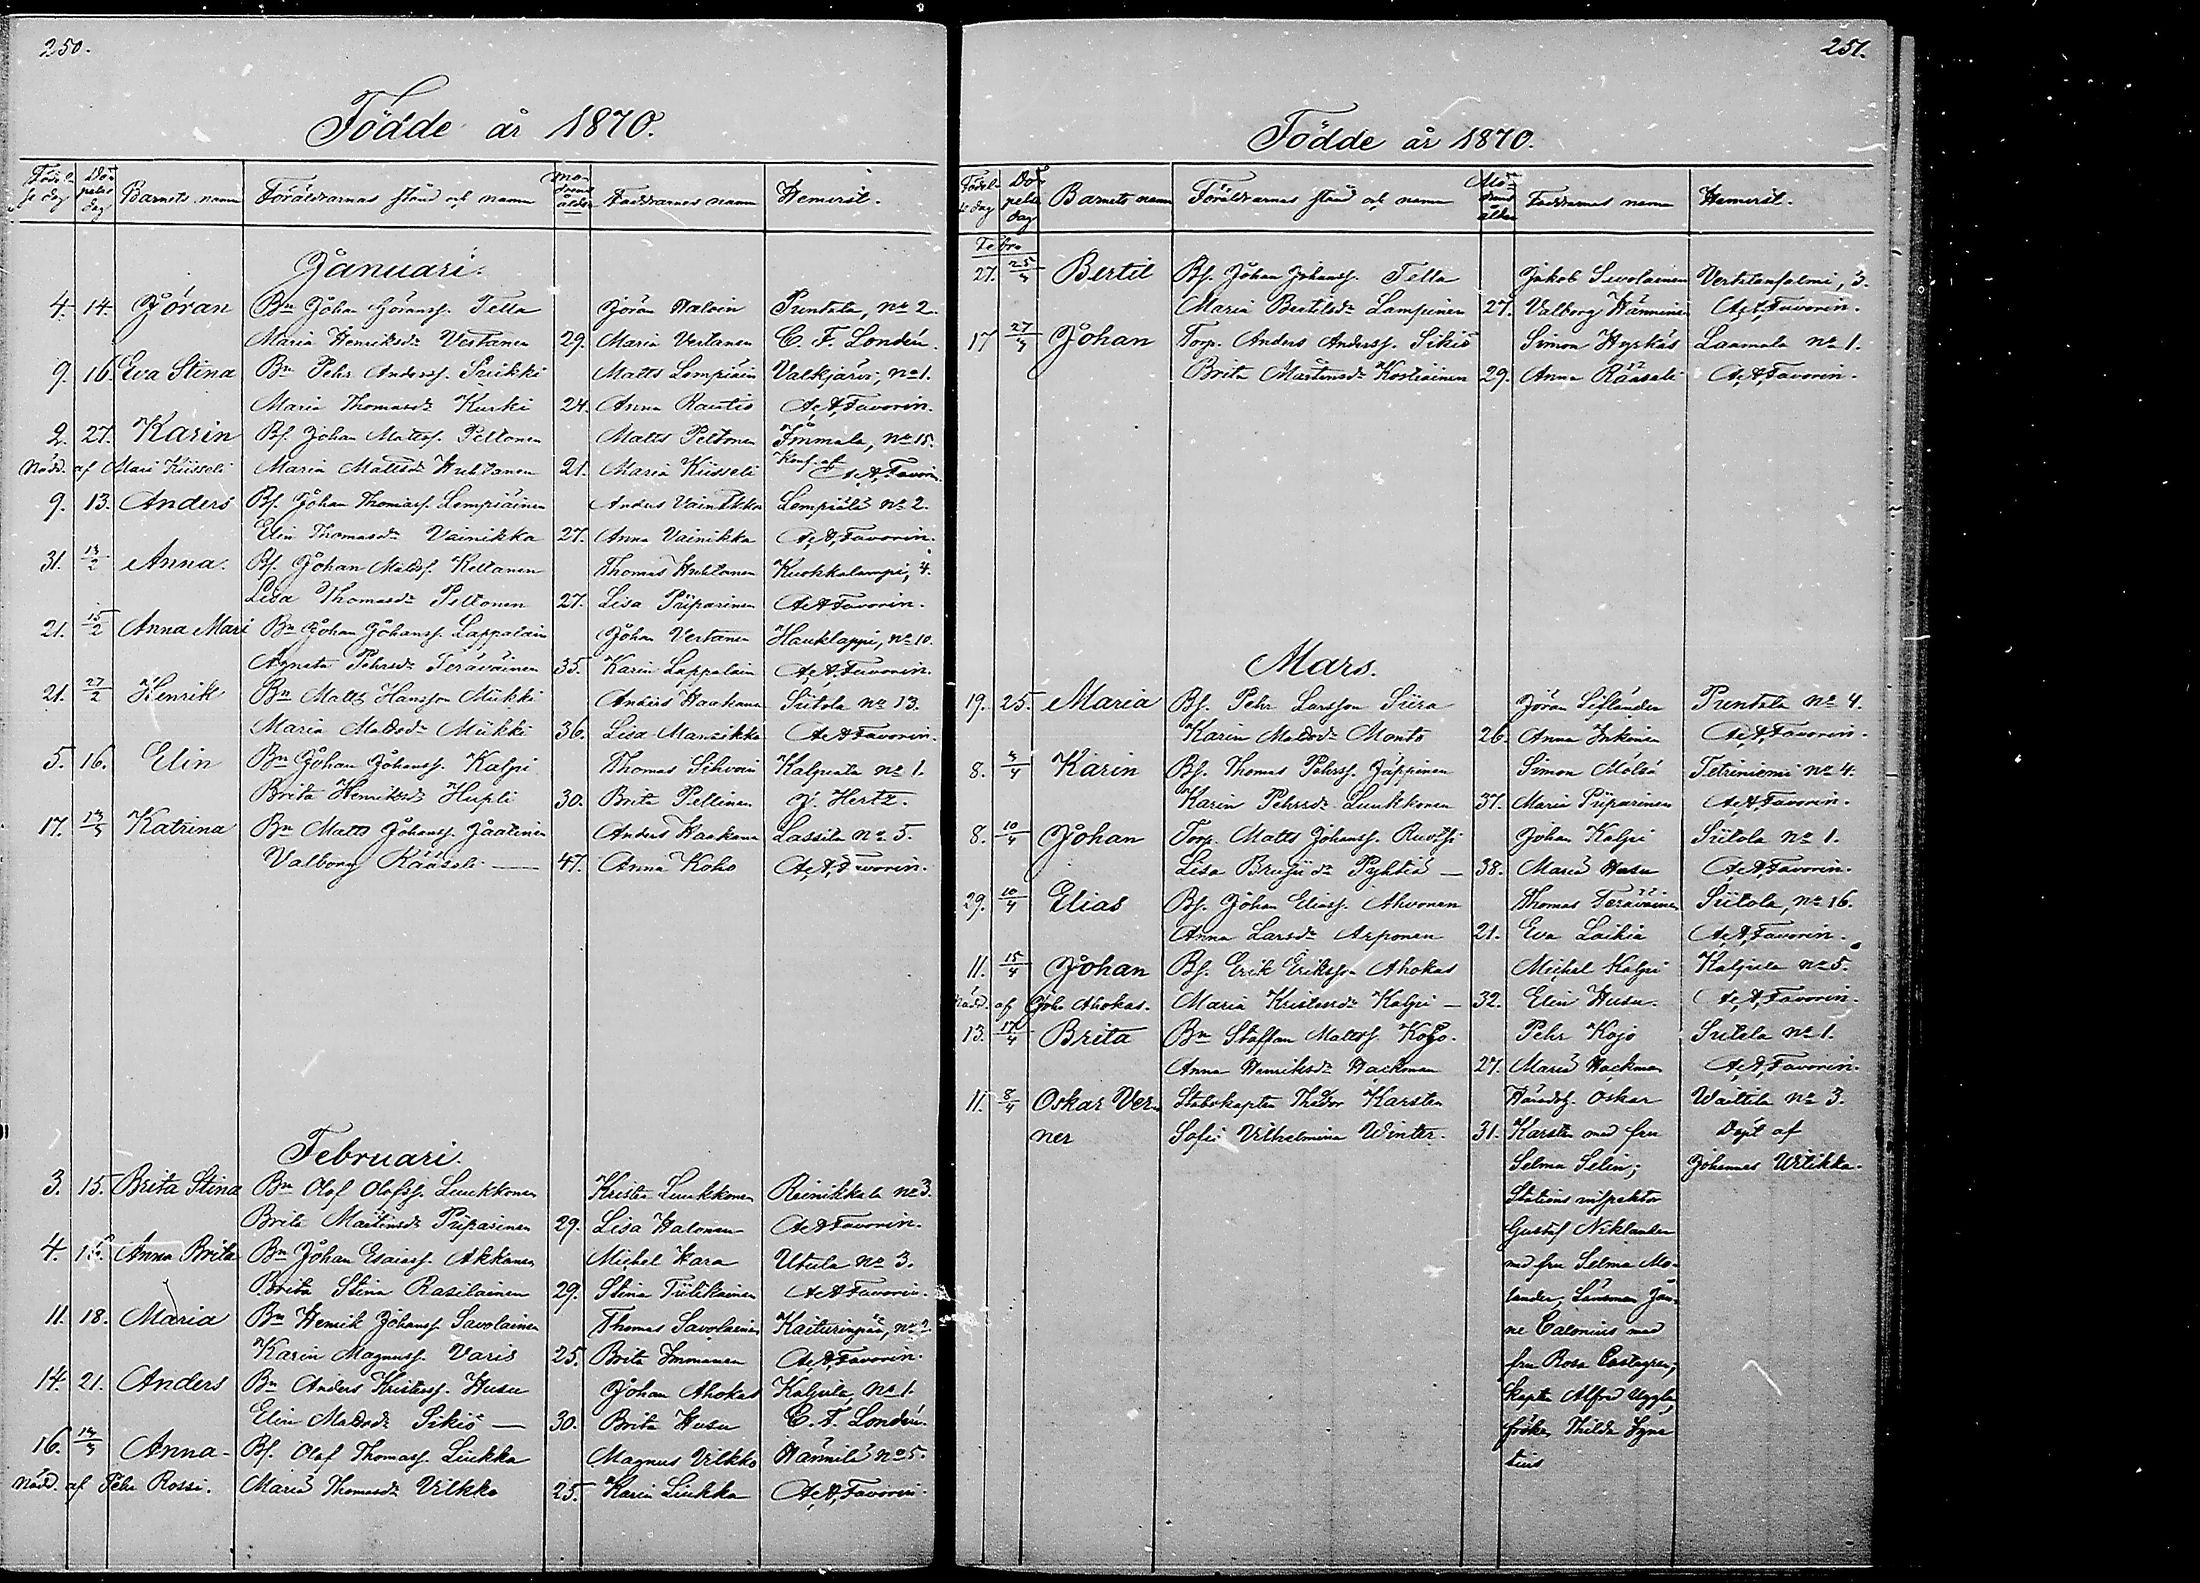 250.
Födde år 1870.
Födel-se dag Dö-pelse dag Barnets namn Föräldrarnas stånd och namn Mo-drens ålder Faddrarnes namn Hemvist.
Januari.
4. 14. Jöran Bn Johan Göranss. Tella Jöran Halvin Puntala, No 2.
Maria Henriksdr Vertanen 29. Maria Vertanen C. F. Londén.
9. 16. Eva Stina Bn Pehr Anderss. Suikki Matts Lempiäin Valkjärvi, No 1.
Maria Thomasdr Kurki 24. Anna Rautio A. A. Favorin.
2. 27. Karin Bf. Johan Mattss. Peltonen Matts Peltonen Immala, No 15.
Nödd. af Mari Kiisseli Maria Mattsdr Huhtanen 21. Maria Kiisseli Konf. af A. A. Favorin.
9. 13. Anders Bf. Johan Thomass. Lempiäinen Anders Vainikka Lempiälä No 2.
Elin Thomasdr Vainikka 27. Anna Vainikka A. A. Favorin.
31. 13/2 Anna. Bf. Johan Mattss. Keltanen Thomas Huhtanen Kuokkalampi, 4.
Lisa Thomasdr Peltonen 27. Lisa Piiparinen A. A. Favorin.
21. 15/2 Anna Mari Bn Johan Johanss. Lappalain Johan Vertanen Hauklappi, No 10.
Agneta Pehrsdr Teräväinen 35. Karin Lappalain A. A. Favorin.
21. 27/2 Henrik Bn Matts Hansson Miikki Anders Haakana Siitola No 13.
Maria Mattsdr Miikki 36. Lisa Mansikka A. A. Favorin.
5. 16. Elin Bn Johan Johanss. Kalpi Thomas Sihvoin Kalpiala No 1.
Brita Henriksdr Hupli 30. Brita Pellinen J. Hertz.
17. 13/3 Katrina Bn Matts Johanss. Jaatinen Anders Haakana Lassila No 5.
Valborg Rääseli — 47. Anna Koho A. A. Favorin.
Februari.
3. 15. Brita Stina Bn Olof Olofss. Luukkonen Krister Luukkonen Räinikkala No 3.
Brita Mårtensdr Piiparinen 29. Lisa Halonen A. A. Favorin.
4. Anna Brita Bn Johan Esaiass. Akkanen Michel Kara Utula No 3.
Brita Stina Rasilainen 29. Stina Tiilikainen A. A. Favorin.
11. 18. Maria Bn Henrik Johanss. Savolainen Thomas Savolainen Kaiturinpää, No 2
Karin Magnuss. Varis 25. Brita Immonen A. A. Favorin.
14. 21. Anders Bn Anders Kristerss. Husu Johan Ahokas Kalpiala, No 1.
Elin Mattsdr Sikiö — 30. Brita Husu C. F. Londén.
16. 14/3 Anna - Bf. Olof Thomass. Liukka Magnus Vilkko Hännilä No 5.
Nödd. af Pehr Rossi. Maria Thomasdr Vilkko 25. Karin Liukka A. A. Favorin.
251.
Födde år 1870.
Födel-se dag Dö-pelse dag Barnets namn Föräldrarnas stånd och namn Mo-drens ålder Faddrarnes namn Hemvist.
Febr.
27. 25/3 Bertil Bf. Johan Johanss. Tella Jakob Savolainen Vertalansalmi, 3.
Maria Bertilsdr Lampinen 27. Valborg Hänninen A. A. Favorin.
17 27/3 Johan Torp. Anders Anderss. Sikiö Simon Hyrkäs Laamala No 1.
Brita Mårtensdr Kostiainen 29. Anna Rääseli A. A. Favorin.
Mars.
19. 25. Maria Bf. Pehr Larsson Siira Jöran Siflander Puntala No 4.
Karin Mattsdr Monto 26. Anna Inkinen A. A. Favorin.
8. 3/4 Karin Bf. Thomas Pehrss. Jäppinen Simon Mölsä Tetriniemi No 4.
Karin Pehrsdr Luukkonen 37. Maria Piiparinen A. A. Favorin.
8. 10/4 Johan Torp. Matts Johanss. Ruotsi Johan Kalpi Siitola No 1.
Lisa Pyhtiä — 38. Maria Husu A. A. Favorin.
29. 10/4 Elias Bf. Johan Eliass. Ahvonen Thomas Teräväinen Siitola, No 16.
Anna Larsdr Arponen 21. Eva Laikia A. A. Favorin.
11. 15/4 Johan Bf. Erik Eriksson Ahokas Michel Kalpi Kalpiala No 5.
Nödd. af Joh. Ahokas. Maria Kristersdr Kalpi — 32. Elin Husu. A. A. Favorin.
13. 17/4 Brita Bn Staffan Mattss. Kojo. Pehr Kojo Siitola No 1.
Anna Henriksdr Hackman 27. Maria Hackman A. A. Favorin.
11. 8/4 Oskar Ver- Stabskapten Thedor Karsten Häradsh. Oskar Waittila No 3.
ner Sofie Vilhelmina Winter. 31. Karsten med fru Döpt af
Selma Selin; Johannes Utlikka.
Stations inspektor
Gustaf Niklander
med fru Selma Mo-
lander, Länsman Jan-
ne Calonius med
fru Rosa Castagren;
Kapten Alfred Uggla,
fröken Thilda Igna
tius